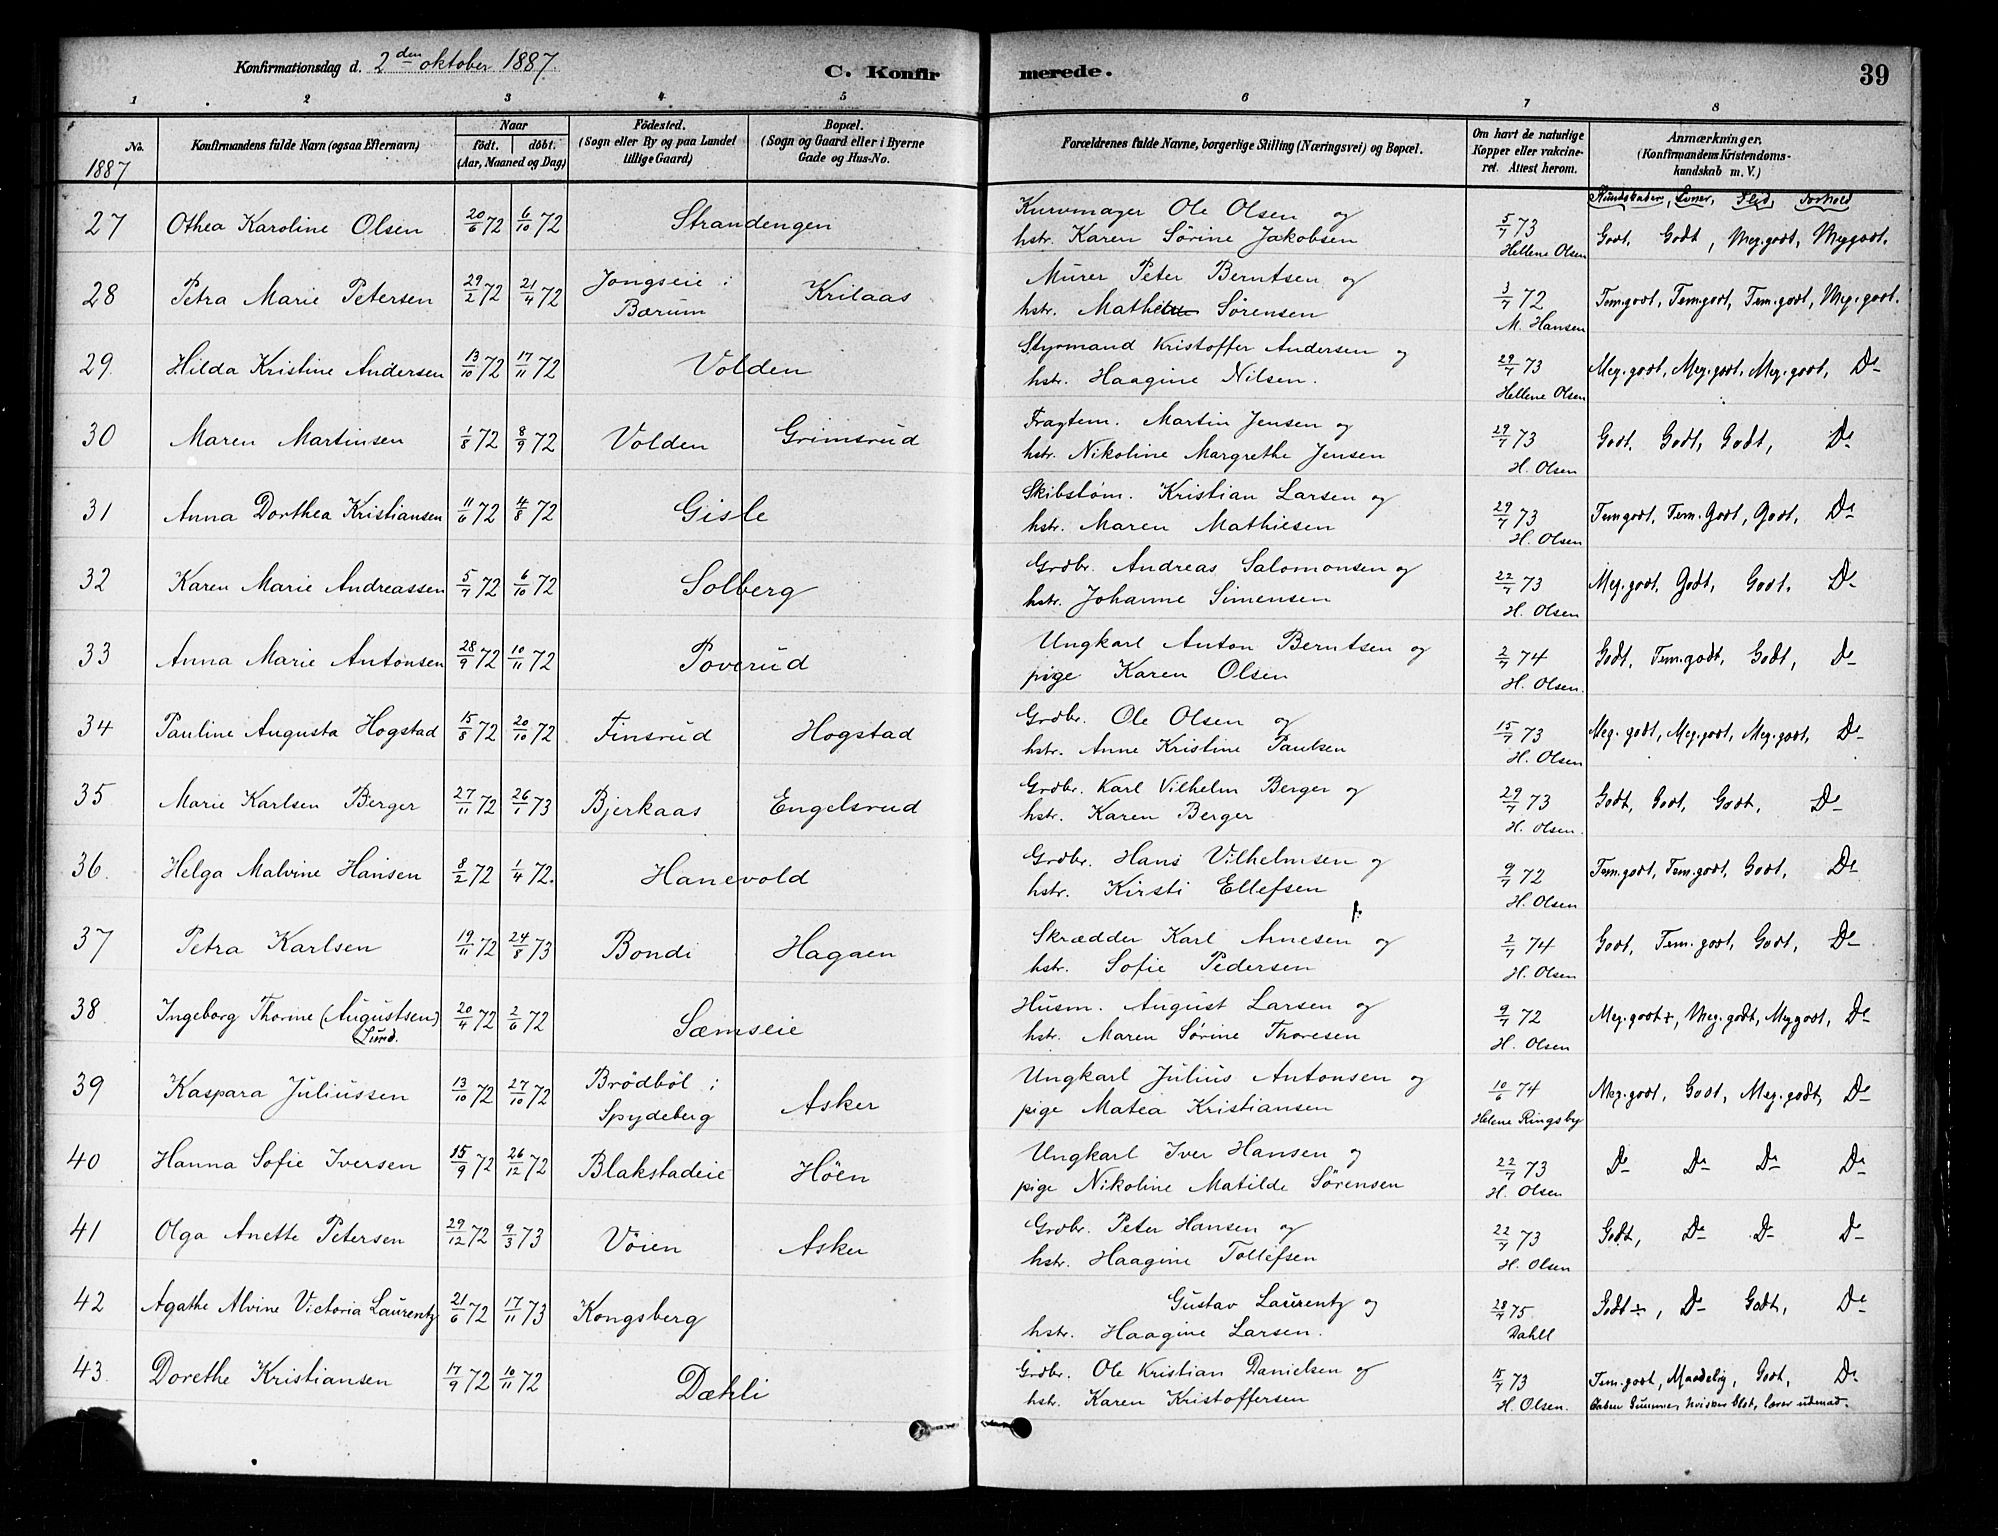 Konfirmationsdag d. 2den oktober 1887.
C. Konfir merede. 39
1 2 3 4 5 6 7 8
No. Konfirmandens fulde Navn (ogsaa Efternavn) Naar født. døbt. (Aar, Maaned og Dag) Fødested. (Sogn eller By og paa Landet tillige Gaard) Bopæl. (Sogn og Gaard eller i Byerne Gade og Hus-No. Forældrenes fulde Navne, borgerlige Stilling (Næringsvei) og Bopæl. Om havt de naturlige Kopper eller vakcineret. Attest herom. Anmærkninger. (Konfirmandens Kristendomskundskab m. V.)
1887
Kundskaber, Evner, Flid, Forhold
27 Othea Karoline Olsen 20/6 72 6/10 72 Strandengen Kurvmager Ole Olsen og 5/7 73 Godt, Godt, Meg. godt, Meg godt.
hstr. Karen Sørine Jakobsen Hellene Olsen
28 Petra Marie Petersen 29/2 72 21/4 72 Jongseie i Krilaas Murer Peter Berntsen og 3/7 72 Tem. godt, Tem. godt, Tem. godt, Meg. godt.
Bærum hstr. Mathea Sørensen M. Hansen
29. Hilda Kristine Andersen 13/10 72 17/11 72 Volden Styrmand Kristoffer Andersen og 29/7 73 Meg. godt, Meg. godt, Meg. godt, Do
hstr. Haagine Nilsen. Hellene Olsen
30 Maren Martinsen 1/8 72 8/9 72 Volden Grimsrud Fragtem. Martin Jensen og 29/7 73 Godt, Godt, Godt, Do
hstr. Nikoline Margrethe Jensen H. Olsen
31 Anna Dorthea Kristiansen 11/6 72 4/8 72 Gisle Skibstøm. Kristian Larsen og 29/7 73 Tem godt, Tem. Godt, Godt, Do
hstr. Maren Mathiesen H. Olsen
32 Karen Marie Andreassen 5/7 72 6/10 72 Solberg Grdbr. Andreas Salomonsen og 22/7 73 Meg. godt, Godt, Godt, Do
hstr. Johanne Simensen H. Olsen
33 Anna Marie Antonsen 28/9 72 10/11 72 Poverud Ungkarl Anton Berntsen og 2/7 74 Godt, Tem. godt, Godt, Do
pige Karen Olsen H. Olsen.
34 Pauline Augusta Hogstad 15/8 72 20/10 72 Finsrud Hogstad Grdbr. Ole Olsen og 15/7 73 Meg. godt, Meg. godt, Meg. godt, Do
hstr. Anne Kristine Paulsen H. Olsen
35 Marie Karlsen Berger 27/11 72 26/1 73 Bjerkaas Engelsrud Grdbr. Karl Vilhelm Berger og 29/7 73 Godt, Godt, Godt, Do
hstr. Karen Berger H. Olsen.
36. Helga Malvine Hansen 8/2 72 1/4 72. Hanevold Grdbr. Hans Vilhelmsen og 9/7 72 Tem. godt, Tem. godt, Godt, Do
hstr. Kirsti Ellefsen H. Olsen
37 Petra Karlsen 19/11 72 24/8 73 Bondi Hagaen Skrædder Karl Arnesen og 2/7 74 Godt, Tem. godt, Godt, Do
hstr. Sofie Pedersen H. Olsen
38 Ingeborg Thorine (Augustsen) 20/4 72 2/6 72 Sæmseie Husm. August Larsen og 9/7 72 Meg. godt+, Meg. godt, Meg godt, Do
Lund. hstr. Maren Sørine Thoresen H. Olsen
39 Kaspara Juliussen 13/10 72 27/10 72 Brödböl i Asker Ungkarl Julius Antonsen og 10/6 74 Meg. godt, Godt, Meg. godt, Do
Spydeberg pige Matea Kristiansen Helene Ringsby
40 Hanna Sofie Iversen 15/9 72 26/12 72 Blakstadeie Höen Ungkarl Iver Hansen og 22/7 73 Do Do Do Do
pige Nikoline Matilde Sørensen H. Olsen
41 Olga Anette Petersen 29/12 72 9/3 73 Vöien Asker Grdbr. Peter Hansen og 22/7 73 Godt, Do Do Do
hstr. Haagine Tollefsen H. Olsen
42 Agathe Alvine Victoria Laurentz 21/6 72 17/11 73 Kongsberg Gustav Laurentz og 28/7 75 Godt÷, Do Godt, Do
hstr. Haagine Larsen. Dahll
43. Dorethe Kristiansen 17/9 72 10/11 72 Dæhli Grdbr. Ole Kristian Danielsen og 15/7 73 Tem. godt, Maadelig, Godt, Do
hstr. Karen Kristoffersen H. Olsen.